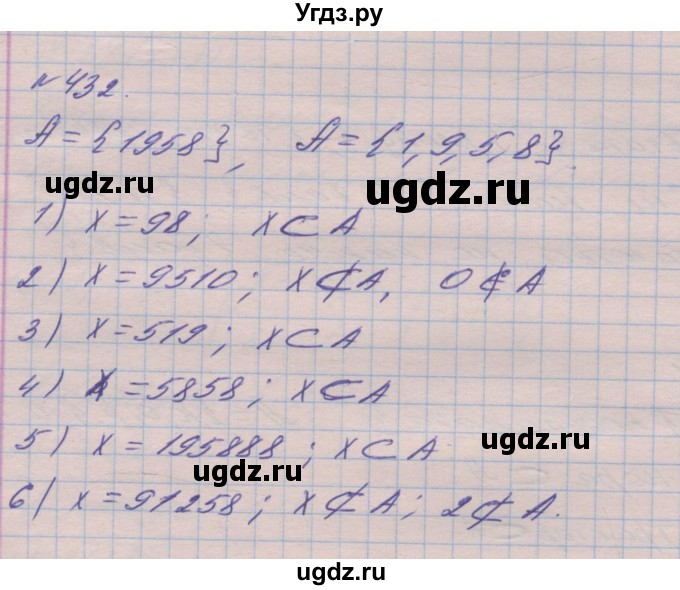 Угдз.ру
№432.
A = {1958}, A = {1, 9, 5, 8}.
ugdz.ru ugdz.ru
1) x = 98; x ⊂ A
2) x = 9510; x ⊄ A, 0 ∉ A
3) x = 519; x ⊂ A
4) x = 5858; x ⊂ A
ugdz.ru
5) x = 195888; x ⊂ A
ugdz.ru
6) x = 91258; x ⊄ A; 2 ⊄ A.
ugdz.ru